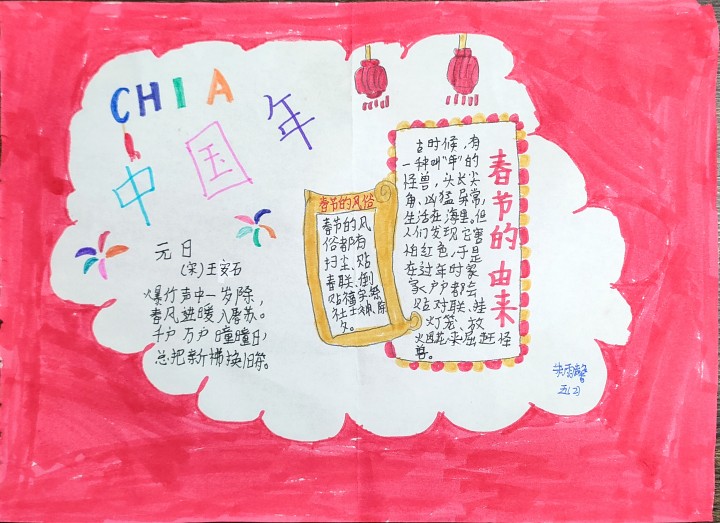 CHIA
中国年
元日
(宋)王安石
爆竹声中一岁除,
春风送暖入屠苏。
千户万户曈曈日,
总把新桃换旧符。
春节的风俗
春节的风
俗都有
扫尘、贴
春联、倒
贴福字、祭
社土神、除
夕。
春节的由来
古时候,有
一种叫"年"的
怪兽,头长尖
角、凶猛异常,
生活在海里。但
人们发现它害
怕红色,于是
在过年时家
家户户都会
贴对联、挂
灯笼、放
火烟花来屈赶怪
兽。
五(2)